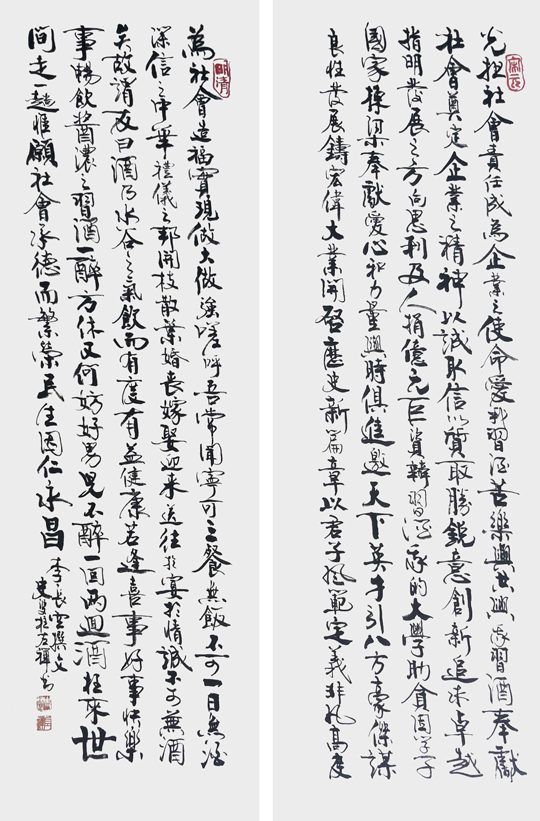 先担社會責任成為企業之使命愛我習酒苦樂與共興我習酒奉獻
社會奠定企業之精神以誠取信以質取勝鋭意創新追求卓越
指明發展之方向惠利及人捐億元巨資轉習酒我的大學助貧困學子
國家棟梁奉獻愛心和力量與時俱進邀天下英才引八方豪傑謀
良性發展鑄宏偉大業開啓歷史新篇章以君子風範定義非凡高度
為社會造福實現做大做强嗟呼吾常聞寧可三餐無飯不可一日無酒
深信之中華禮儀之邦開枝散葉婚喪嫁娶迎來送往於宴於情誠不可無酒
矣故清友曰酒乃水谷之氣飲而有度有益健康若逢喜事好事快樂
事暢飲醬濃之習酒一醉方休又何妨好男兒不醉一回兩迴酒柱來世
間走一趟惟願社會承德而繁榮民生因仁永昌
李長雲撰文